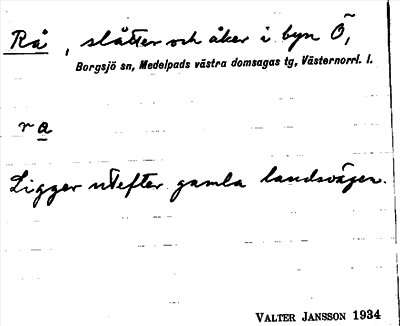 Rå, slåtter och åker i byn Ö,
Borgsjö sn, Medelpads västra domsagas tg, Västernorrl. l.
ra
Ligger utefter gamla landsvägen.
VALTER JANSSON 1934